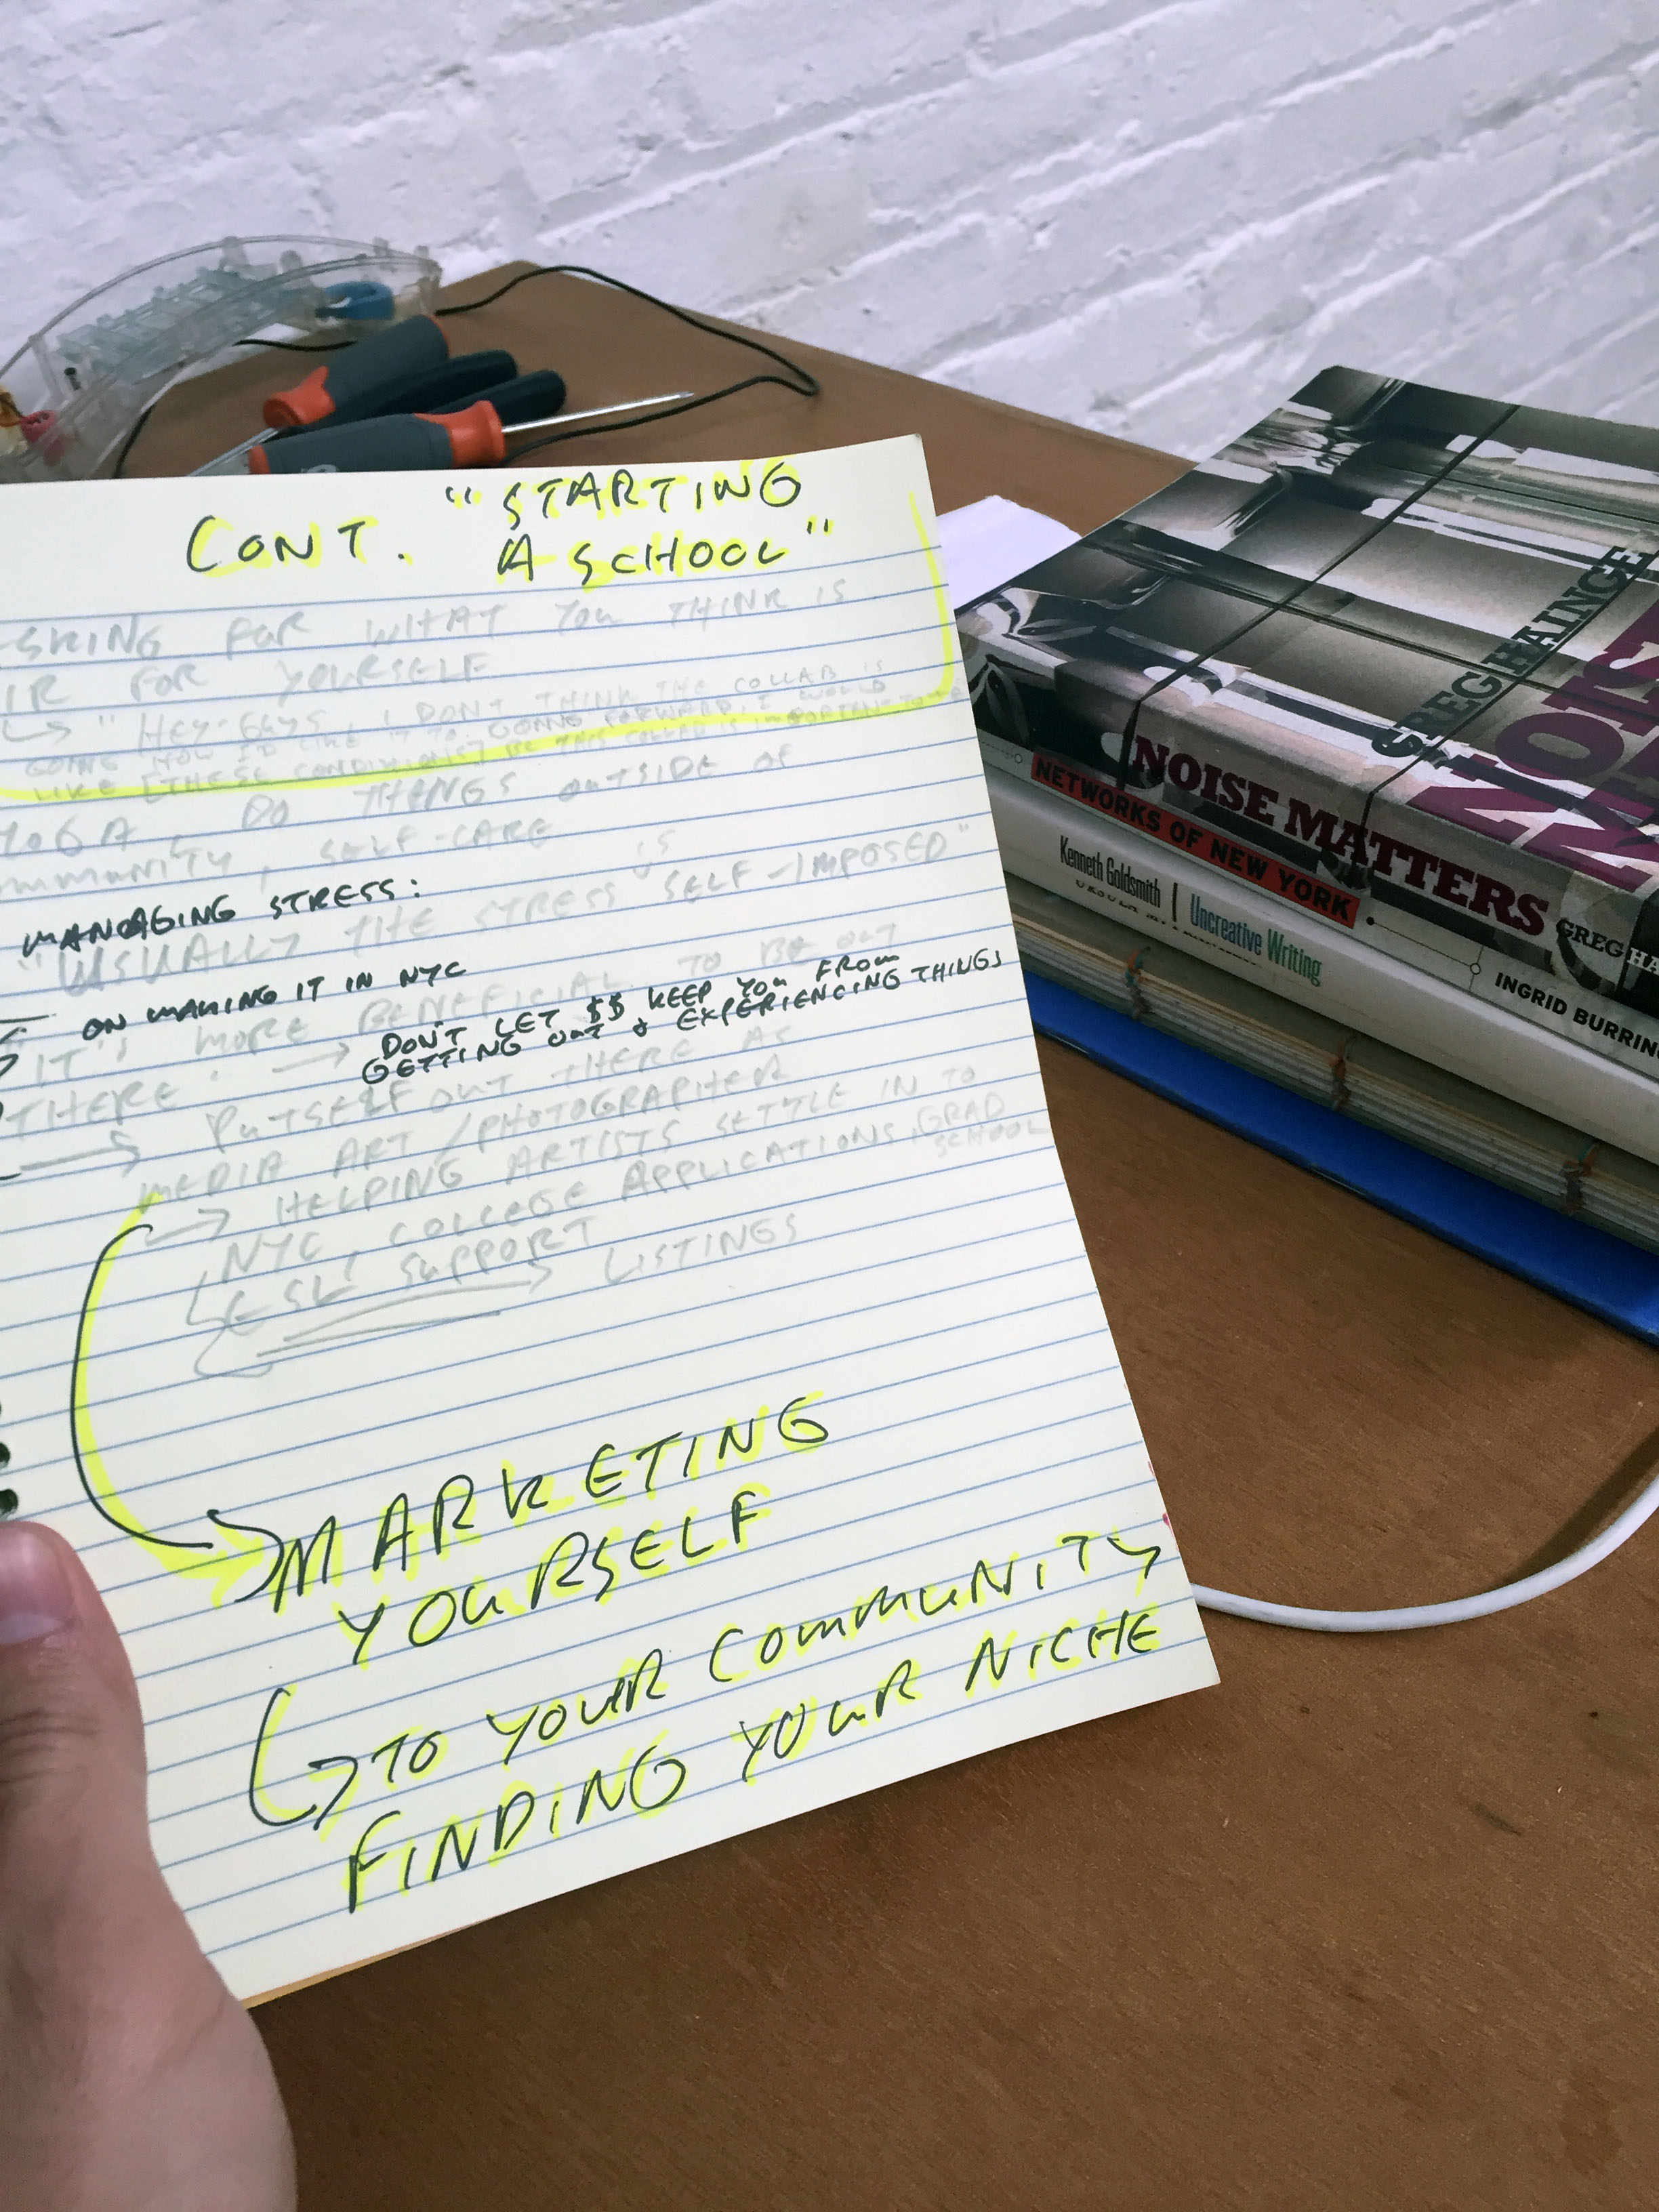 CONT. "STARTING
A SCHOOL"
SKING FOR WHAT YOU THINK IS
IR FOR YOURSELF
"HEY GUYS, I DON'T THINK THE COLLAB IS
GOING HOW I'D LIKE IT TO. GOING FORWARD, I WOULD
LIKE [THESE CONDITIONS] BC THIS COLLAB IS IMPORTANT TO ME
YOGA, DO THINGS OUTSIDE OF
MMUNITY, SELF-CARE
MANAGING STRESS:
"USUALLY THE STRESS IS SELF-IMPOSED"
ON MAKING IT IN NYC
"IT'S MORE BENEFICIAL TO BE OUT
THERE"
DON'T LET $$ KEEP YOU FROM
GETTING OUT & EXPERIENCING THINGS
PUT SELF OUT THERE AS
MEDIA ART / PHOTOGRAPHER
HELPING ARTISTS SETTLE IN TO
NYC, COLLEGE APPLICATIONS, GRAD
SCHOOL
ESL SUPPORT
LISTINGS
MARKETING
YOURSELF
TO YOUR COMMUNITY
FINDING YOUR NICHE
GREG HAINGE
NOISE MATTERS
GREG HA
NETWORKS OF NEW YORK
INGRID BURRIN
Kenneth Goldsmith | Uncreative Writing